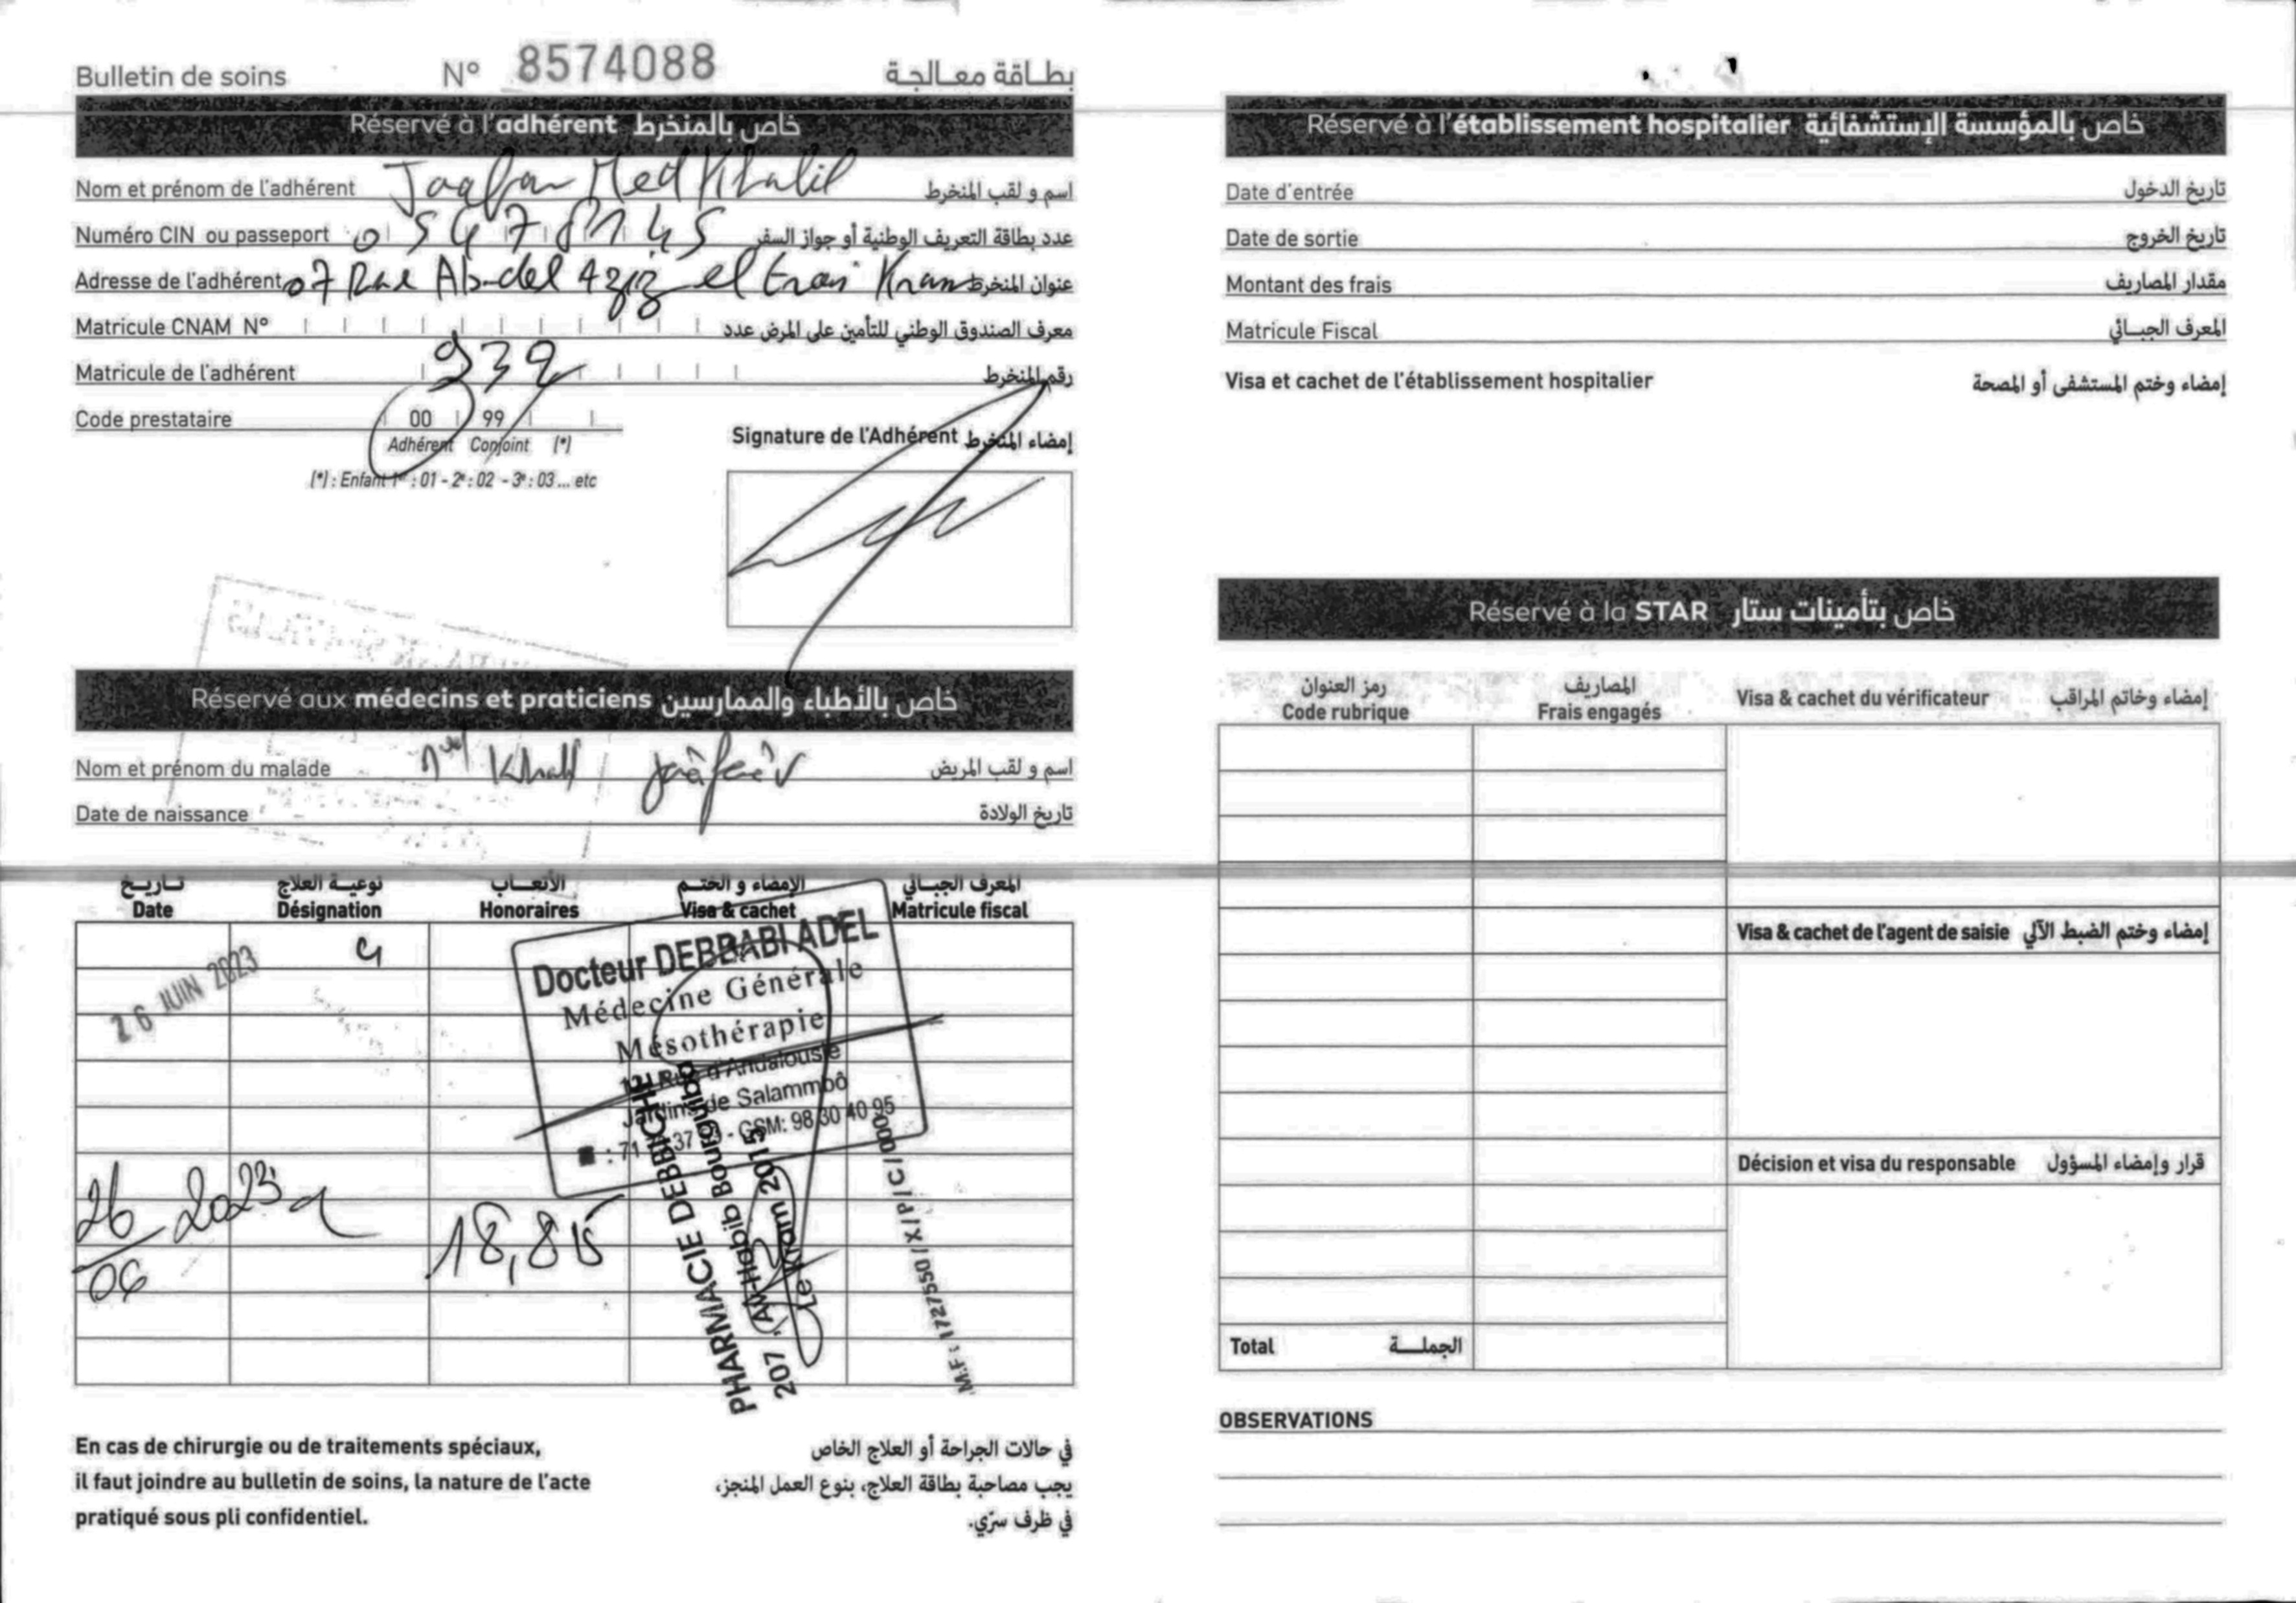 Bulletin de soins N° 8574088 بطاقة معالجة
Réservé à l'adhérent خاص بالمنخرط
Nom et prénom de l'adhérent Jaafar Med Khalil اسم و لقب المنخرط
Numéro CIN ou passeport 05478145 عدد بطاقة التعريف الوطنية أو جواز السفر
Adresse de l'adhérent 07 Rue Abdel Aziz el Kram عنوان المنخرط
Matricule CNAM N° معرف الصندوق الوطني للتأمين على المرض عدد
Matricule de l'adhérent 932 رقم المنخرط
Code prestataire 00 99
Adhérent Conjoint (*)
(*) : Enfant 1er : 01 - 2e : 02 - 3e : 03 ... etc
Signature de l'Adhérent إمضاء المنخرط
Réservé aux médecins et praticiens خاص بالأطباء والممارسين
Nom et prénom du malade Med Khalil Jaâfar اسم و لقب المريض
Date de naissance تاريخ الولادة
تاريخ نوعية العلاج الأتعاب الإمضاء و الختم المعرف الجبائي
Date Désignation Honoraires Visa & cachet Matricule fiscal
26 JUIN 2023
Docteur DEBBABI ADEL
Médecine Générale
Mésothérapie
121 Rue d'Andalousie
Jardins de Salammbô
: 71 37 - GSM: 98 30 40 95
26/06 2023 18,815
PHARMACIE DEBBICHE
207, Av. Habib Bourguiba
Le Kram 2015
M.F : 1727550/X/P/C/000
En cas de chirurgie ou de traitements spéciaux,
il faut joindre au bulletin de soins, la nature de l'acte
pratiqué sous pli confidentiel.
في حالات الجراحة أو العلاج الخاص
يجب مصاحبة بطاقة العلاج، بنوع العمل المنجز،
في ظرف سرّي.
Réservé à l'établissement hospitalier خاص بالمؤسسة الإستشفائية
Date d'entrée تاريخ الدخول
Date de sortie تاريخ الخروج
Montant des frais مقدار المصاريف
Matricule Fiscal المعرف الجبائي
Visa et cachet de l'établissement hospitalier إمضاء وختم المستشفى أو المصحة
Réservé à la STAR خاص بتأمينات ستار
رمز العنوان المصاريف
Code rubrique Frais engagés Visa & cachet du vérificateur إمضاء وخاتم المراقب
Visa & cachet de l'agent de saisie إمضاء وختم الضبط الآلي
Décision et visa du responsable قرار وإمضاء المسؤول
Total الجملة
OBSERVATIONS